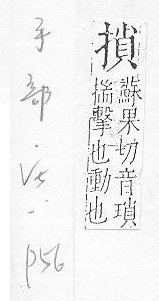 蘇果切音瑣
揣擊也動也
手部
p56